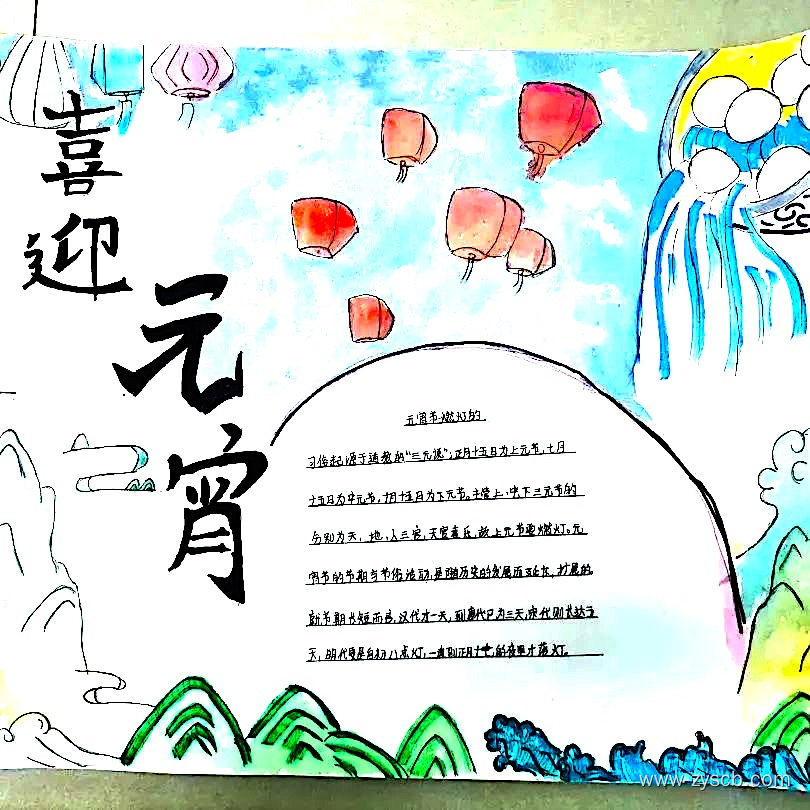 喜迎
元宵
元宵节燃灯的
习俗起源于道教的“三元说”;正月十五日为上元节,七月
十五日为中元节,十月十五日为下元节。主管上、中、下三元节的
分别为天、地、人三官,天官喜乐,故上元节要燃灯。元
宵节的节期与节俗活动,是随历史的发展而延长、扩展的
就节期长短而言,汉代才一天,到唐代已为三天,宋代则长达五
天,明代更是自初八点灯,一直到正月十七的夜里才落灯。
www.zyscb.com